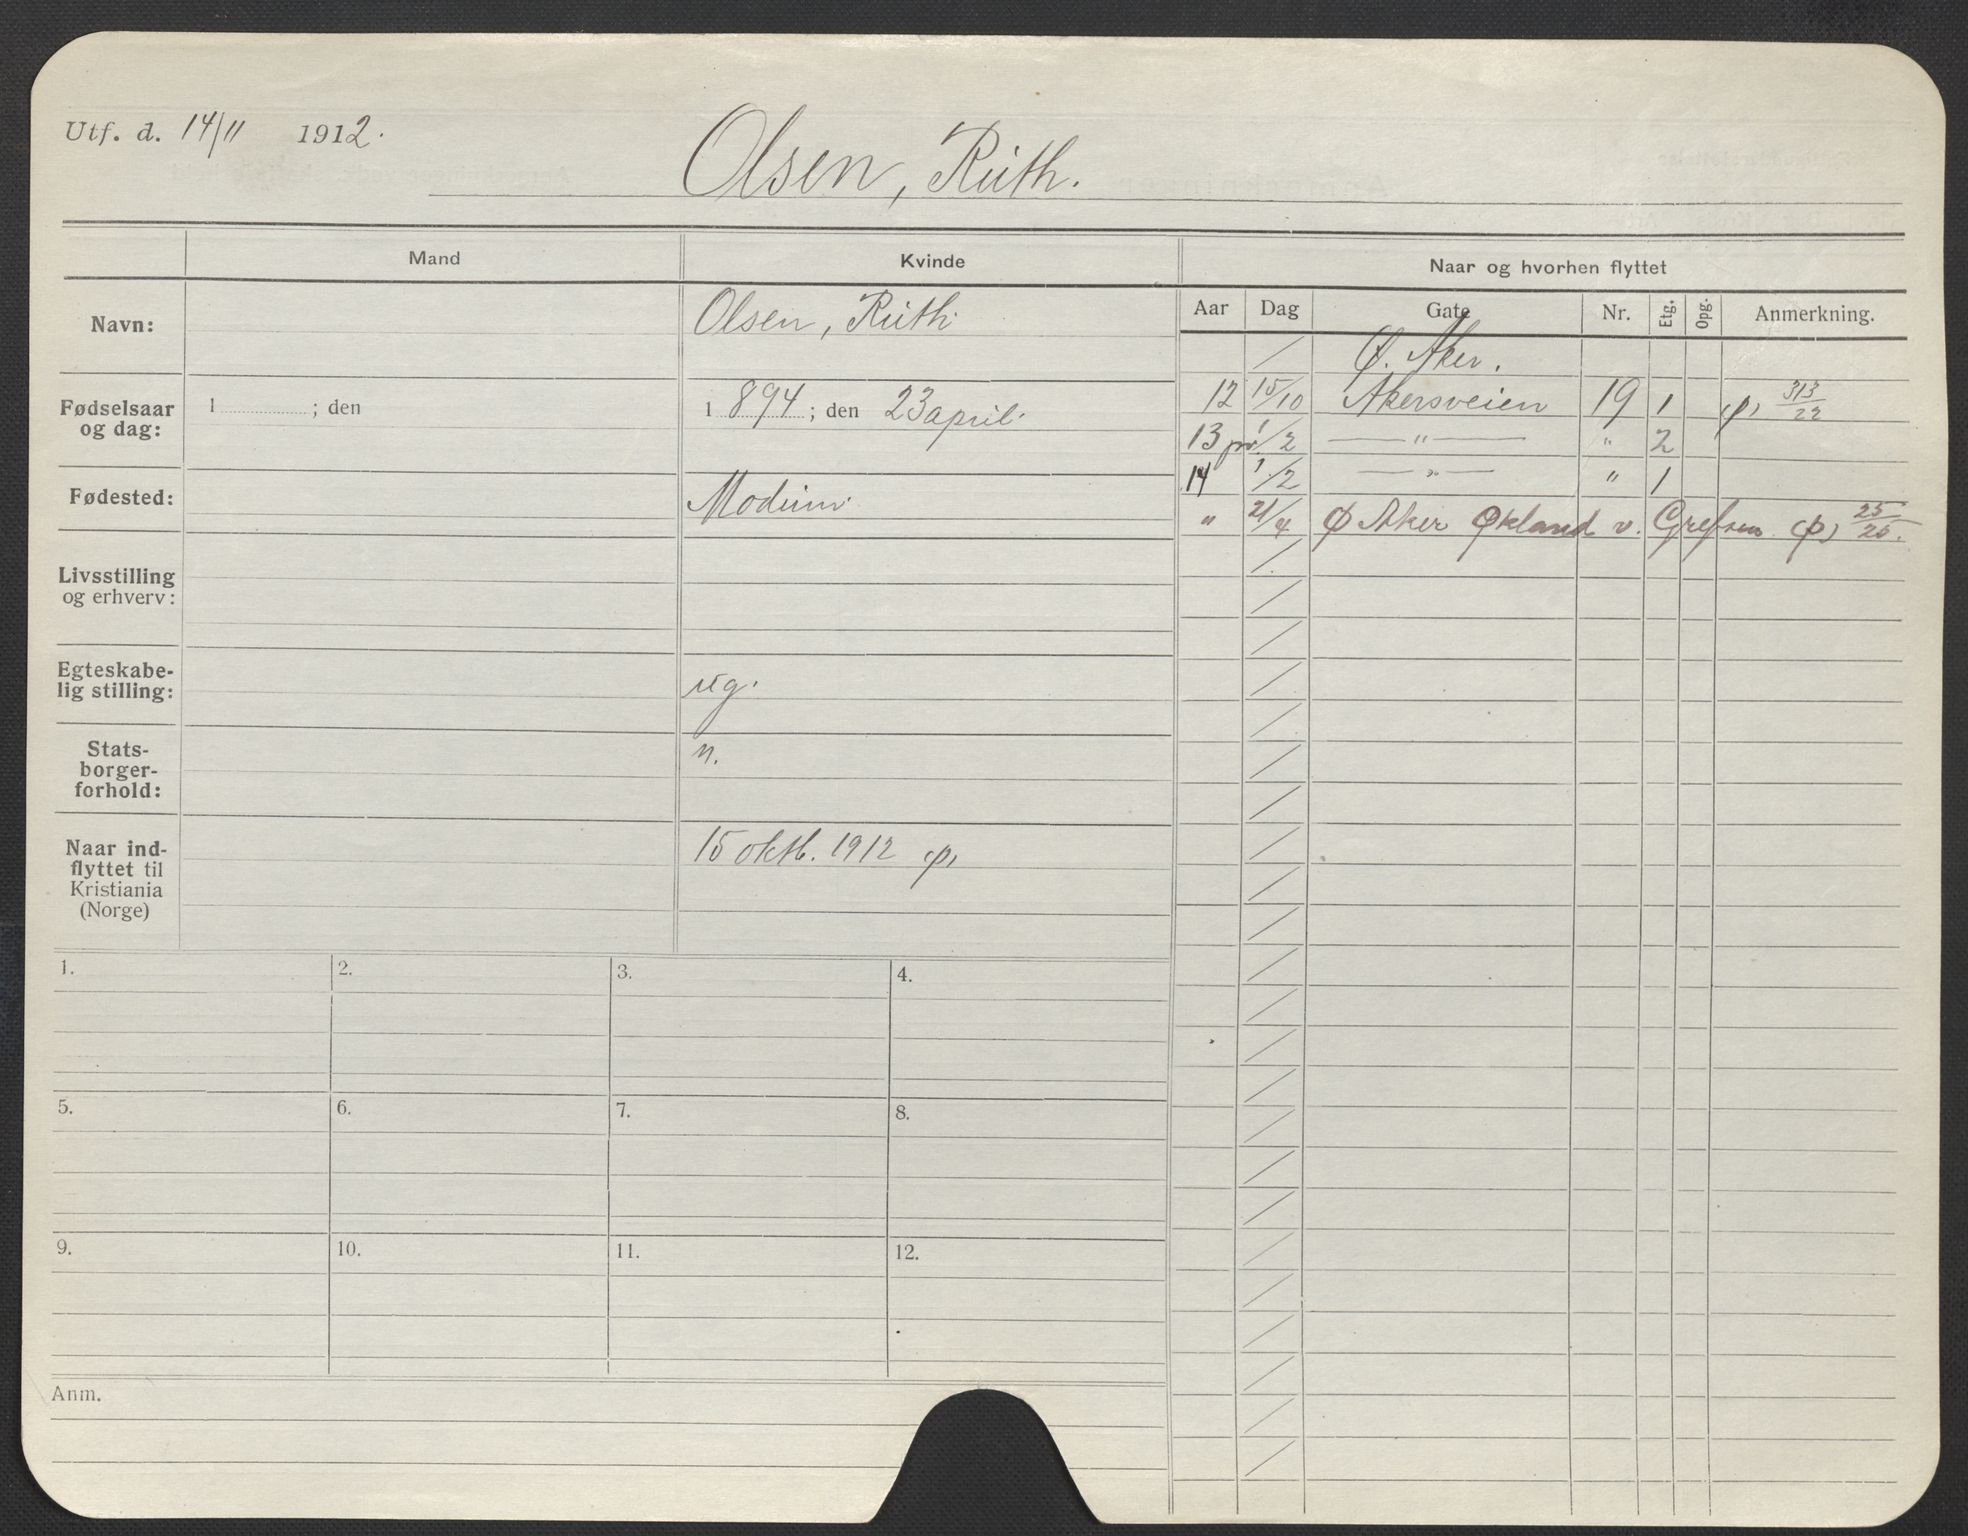 Utf. d. 14/11 1912.
Olsen, Ruth.
Mand
Kvinde
Naar og hvorhen flyttet
Navn:
Olsen, Ruth.
Aar Dag Gate Nr. Etg. Opg. Anmerkning.
Ø. Aker.
Fødselsaar
og dag:
1 ; den
1 894 ; den 23 april.
12 15/10 Akersveien 19 1 (p) 313/22
13 pr 1/2 — " — " 2
14 1/2 — " — " 1
Fødested:
Modum.
" 21/4 Ø Aker Økland v. Grefsen (p) 25/26.
Livsstilling
og erhverv:
Egteskabe-
lig stilling:
ug.
Stats-
borger-
forhold:
n.
Naar ind-
flyttet til
Kristiania
(Norge)
15 oktb. 1912 (p)
1. 2. 3. 4.
5. 6. 7. 8.
9. 10. 11. 12.
Anm.